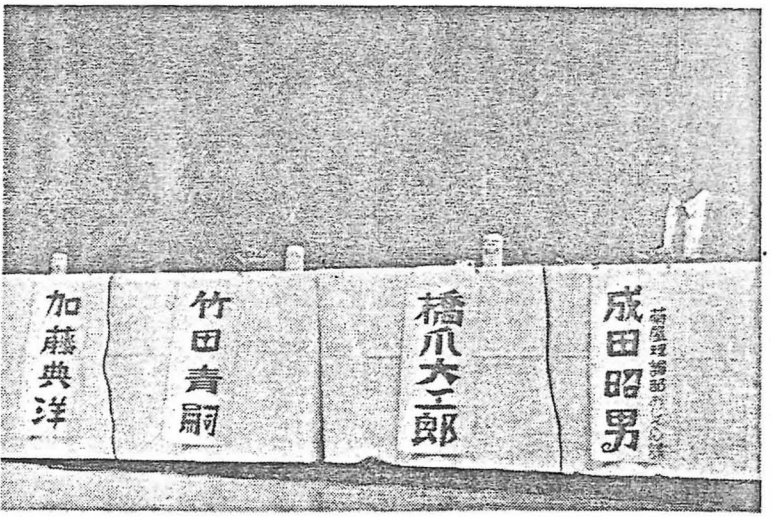 成田昭男
橋爪大三郎
竹田青嗣
加藤典洋